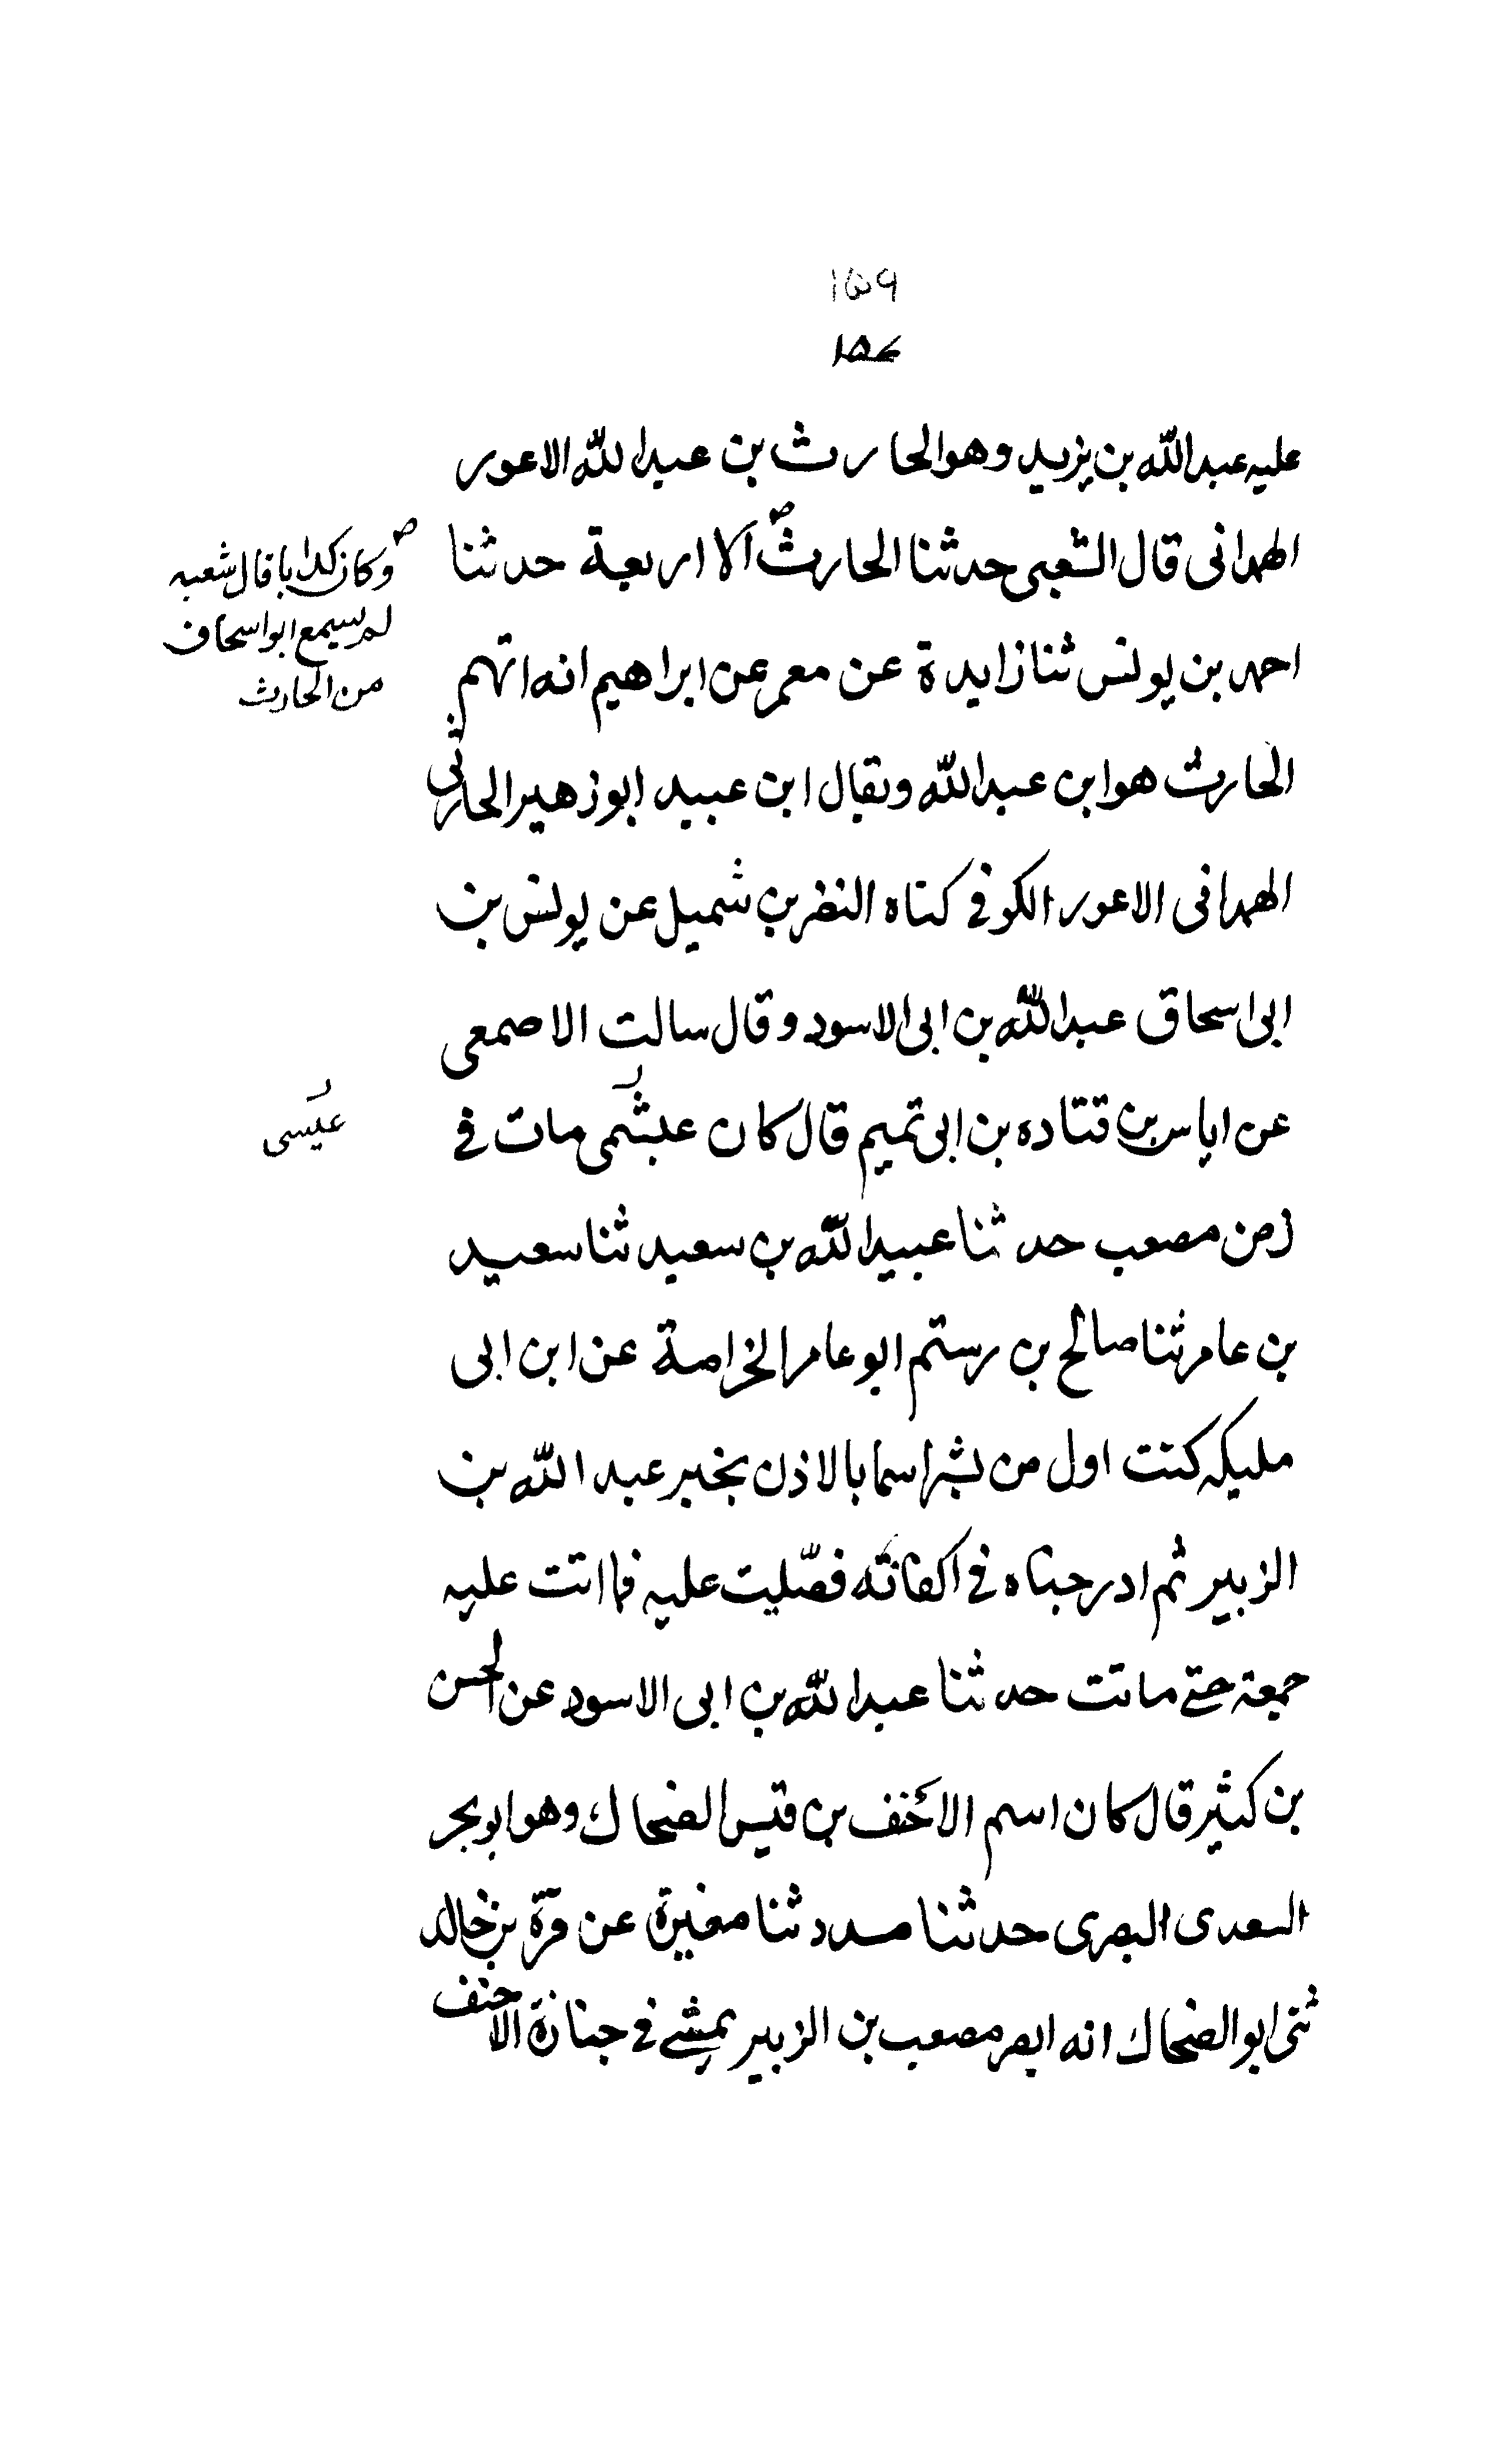 ١٥٩
١٥٧
عليه عبد الله بن يزيد وهو الحارث بن عبد الله الاعور
الهمدانى قال الشعبى حدثنا الحارث الا اربعة حدثنا
وكان كذابا قال شعبه
لم يسمع ابو اسحاق
من الحارث
احمد بن يونس ثنا زايدة عن معمر عن ابراهيم انه اتهم
الحارث هو ابن عبد الله ويقال ابن عبيد ابو زهير الحارثى
الهمدانى الاعور الكوفى كناه النضر بن شميل عن يونس بن
ابى اسحاق عبد الله بن ابى الاسود وقال سالت الاصمعى
عن اياس بن قتاده بن ابى تميم قال كان عبشمى مات فى
عيسى
زمن مصعب حدثنا عبيد الله بن سعيد ثنا سعيد
بن عامر ثنا صالح بن رستم ابو عامر الخزامة عن ابن ابى
مليكه كنت اول من بشر اسما بالاذن بخبر عبد الله بن
الزبير ثم ادرجناه فى اكفانه فصّليت عليه فما اتت عليه
جمعة حتى ماتت حدثنا عبد الله بن ابى الاسود عن الحسن
بن كثير قال كان اسم الاحنف بن قيس الضحاك وهو ابو بحر
السعدى البصرى حدثنا مسدد ثنا مغيرة عن قرة بن خالد
ثنى ابو الضحاك انه ابصر مصعب بن الزبير يمشى فى جنازة الاحنف